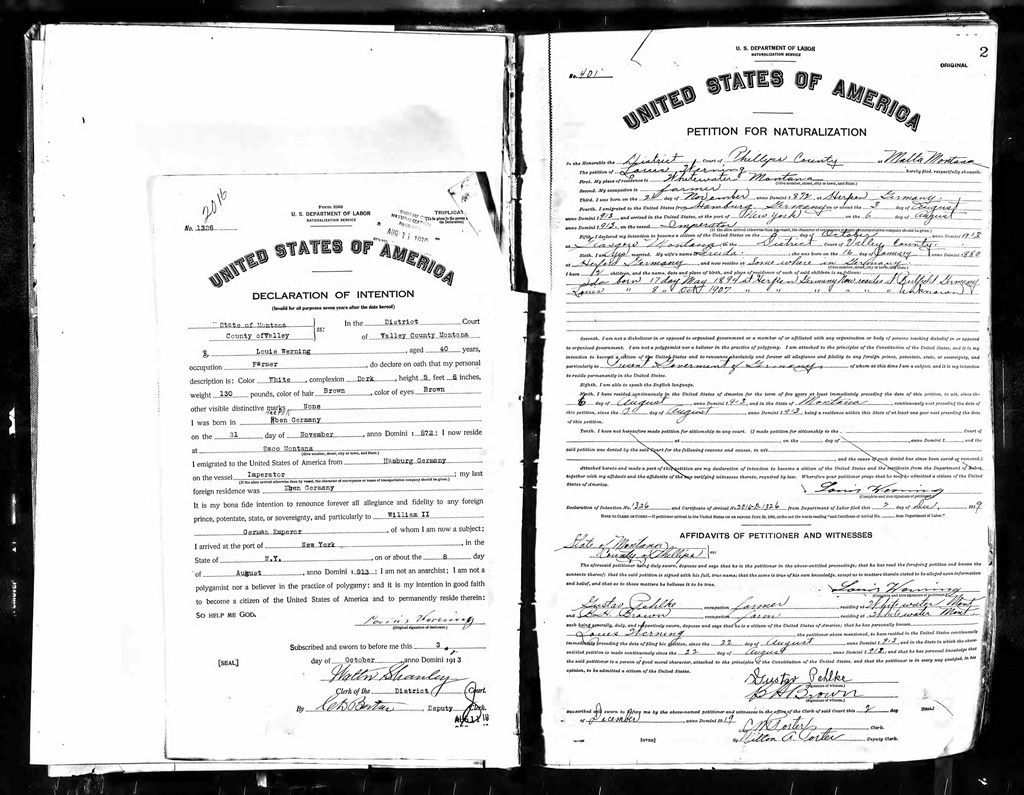 2016
Form 2203
U. S. DEPARTMENT OF LABOR
NATURALIZATION SERVICE
TRIPLICATE
No. 1326
AUG 11
UNITED STATES OF AMERICA
DECLARATION OF INTENTION
(Invalid for all purposes seven years after the date hereof)
State of Montana
County of Valley
ss:
In the District Court
of Valley County Montana
I, Louis Werning, aged 40 years,
occupation Farmer, do declare on oath that my personal
description is: Color White, complexion Dark, height 5 feet 8 inches,
weight 130 pounds, color of hair Brown, color of eyes Brown
other visible distinctive marks None
I was born in Germany
on the 21 day of November, anno Domini 1872; I now reside
at Saco Montana
(Give number, street, city or town, and State.)
I emigrated to the United States of America from Hamburg Germany
on the vessel Imperator; my last
(If the alien arrived otherwise than by vessel, the character of conveyance or name of transportation company should be given.)
foreign residence was Germany
It is my bona fide intention to renounce forever all allegiance and fidelity to any foreign
prince, potentate, state, or sovereignty, and particularly to William II
German Emperor, of whom I am now a subject;
I arrived at the port of New York, in the
State of N.Y., on or about the 8 day
of August, anno Domini 1913; I am not an anarchist; I am not a
polygamist nor a believer in the practice of polygamy; and it is my intention in good faith
to become a citizen of the United States of America and to permanently reside therein:
SO HELP ME GOD.
Louis Werning
(Original signature of declarant.)
Subscribed and sworn to before me this 3
[SEAL] day of October, anno Domini 1913
Clerk of the District Court.
By, Deputy Clerk.
2
U. S. DEPARTMENT OF LABOR
NATURALIZATION SERVICE
No. 401
ORIGINAL
UNITED STATES OF AMERICA
PETITION FOR NATURALIZATION
To the Honorable the District Court of Phillips County at Malta Montana
The petition of Louis Werning, hereby filed, respectfully showeth:
First. My place of residence is Whitewater Montana
(Give number, street, city or town, and State.)
Second. My occupation is farmer
Third. I was born on the 21 day of November anno Domini 1872 at Germany
Fourth. I emigrated to the United States from Hamburg Germany on or about the 3 day of August
anno Domini 1913, and arrived in the United States, at the port of New York on the 6 day of August
anno Domini 1913, on the vessel Imperator
(If the alien arrived otherwise than by vessel, the character of conveyance or name of transportation company should be given.)
Fifth. I declared my intention to become a citizen of the United States on the day of October anno Domini 1913
at Glasgow Montana in the District Court of Valley County
Sixth. I am married. My wife's name is Frieda; she was born on the 16 day of January anno Domini 1880
at Herford Germany, and now resides at Some where in Germany
(Give number, street, city or town, and State.)
I have 2 children, and the name, date and place of birth, and place of residence of each of said children is as follows:
born 17 day May 1894 at Germany Now resides at Germany
Louis " 8 " Oct 1907 " " " " " " unknown
Seventh. I am not a disbeliever in or opposed to organized government or a member of or affiliated with any organization or body of persons teaching disbelief in or opposed
to organized government. I am not a polygamist nor a believer in the practice of polygamy. I am attached to the principles of the Constitution of the United States, and it is my
intention to become a citizen of the United States and to renounce absolutely and forever all allegiance and fidelity to any foreign prince, potentate, state, or sovereignty, and
particularly to Present Goverment of Germany, of whom at this time I am a subject, and it is my intention
to reside permanently in the United States.
Eighth. I am able to speak the English language.
Ninth. I have resided continuously in the United States of America for the term of five years at least immediately preceding the date of this petition, to wit, since the
6 day of August anno Domini 1913 and in the State of Montana continuously next preceding the date
of this petition, since the day of August anno Domini 1913, being a residence within this State of at least one year next preceding the date
of this petition.
Tenth. I have not heretofore made petition for citizenship to any court. (I made petition for citizenship to the Court of
at on the day of, anno Domini 1 and the
said petition was denied by the said Court for the following reasons and causes, to wit,
and the cause of such denial has since been cured or removed.)
Attached hereto and made a part of this petition are my declaration of intention to become a citizen of the United States and the certificate from the Department of Labor,
together with my affidavit and the affidavits of the two verifying witnesses thereto, required by law. Wherefore your petitioner prays that he may be admitted a citizen of the United
States of America.
Louis Werning
(Complete and true signature of petitioner.)
Declaration of Intention No. 1326 and Certificate of Arrival No. from Department of Labor filed this 2 day of Dec, 1919
AFFIDAVITS OF PETITIONER AND WITNESSES
State of Montana
County of Phillips
ss:
The aforesaid petitioner being duly sworn, deposes and says that he is the petitioner in the above-entitled proceedings; that he has read the foregoing petition and knows the
contents thereof; that the said petition is signed with his full, true name; that the same is true of his own knowledge, except as to matters therein stated to be alleged upon information
and belief, and that as to those matters he believes it to be true.
Louis Werning
(Complete and true signature of petitioner.)
Gustav Pehlke, occupation farmer, residing at Whitewater Mont
and Brown, occupation farm, residing at Whitewater Mont
each being severally, duly, and respectively sworn, deposes and says that he is a citizen of the United States of America; that he has personally known
Louis Werning, the petitioner above mentioned, to have resided in the United States continuously
immediately preceding the date of filing his petition, since the 22 day of August anno Domini 1913, and in the State in which the above-
entitled petition is made continuously since the 22 day of August, anno Domini 1913; and that he has personal knowledge that
the said petitioner is a person of good moral character, attached to the principles of the Constitution of the United States, and that the petitioner is in every way qualified, in his
opinion, to be admitted a citizen of the United States.
Gustav Pehlke
(Signature of witness.)
Brown
(Signature of witness.)
Subscribed and sworn to before me by the above-named petitioner and witnesses in the office of the Clerk of said Court this 2 day
of December, anno Domini 1919
[SEAL]
C M Porter, Clerk.
By Milton A. Porter Deputy Clerk.
[OVER]